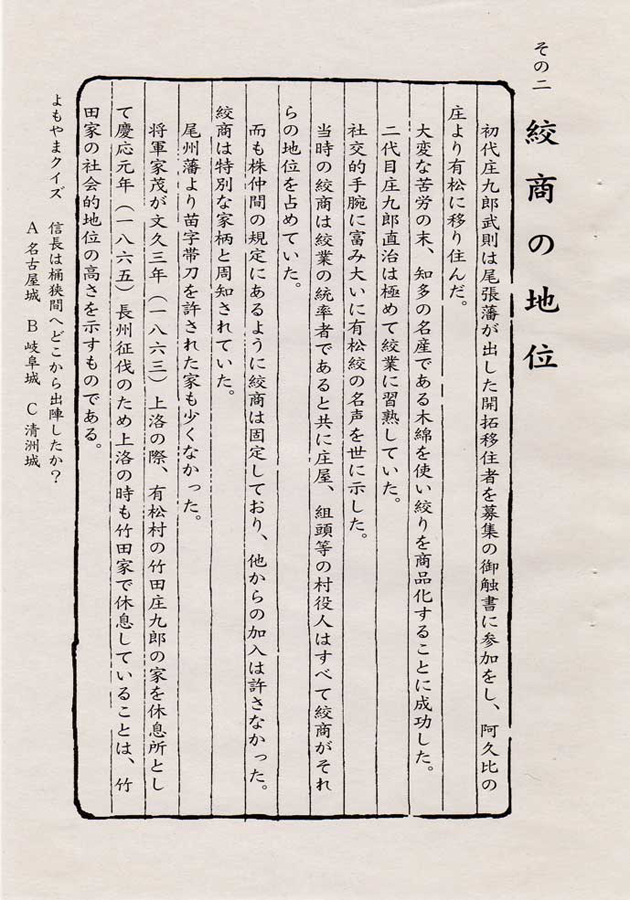 その二　絞商の地位
初代庄九郎武則は尾張藩が出した開拓移住者を募集の御触書に参加をし、阿久比の
庄より有松に移り住んだ。
大変な苦労の末、知多の名産である木綿を使い絞りを商品化することに成功した。
二代目庄九郎直治は極めて絞業に習熟していた。
社交的手腕に富み大いに有松絞の名声を世に示した。
当時の絞商は絞業の統率者であると共に庄屋、組頭等の村役人はすべて絞商がそれ
らの地位を占めていた。
而も株仲間の規定にあるように絞商は固定しており、他からの加入は許さなかった。
絞商は特別な家柄と周知されていた。
尾州藩より苗字帯刀を許された家も少くなかった。
将軍家茂が文久三年（一八六三）上洛の際、有松村の竹田庄九郎の家を休息所とし
て慶応元年（一八六五）長州征伐のため上洛の時も竹田家で休息していることは、竹
田家の社会的地位の高さを示すものである。
よもやまクイズ　信長は桶狭間へどこから出陣したか？
A 名古屋城　B 岐阜城　C 清洲城